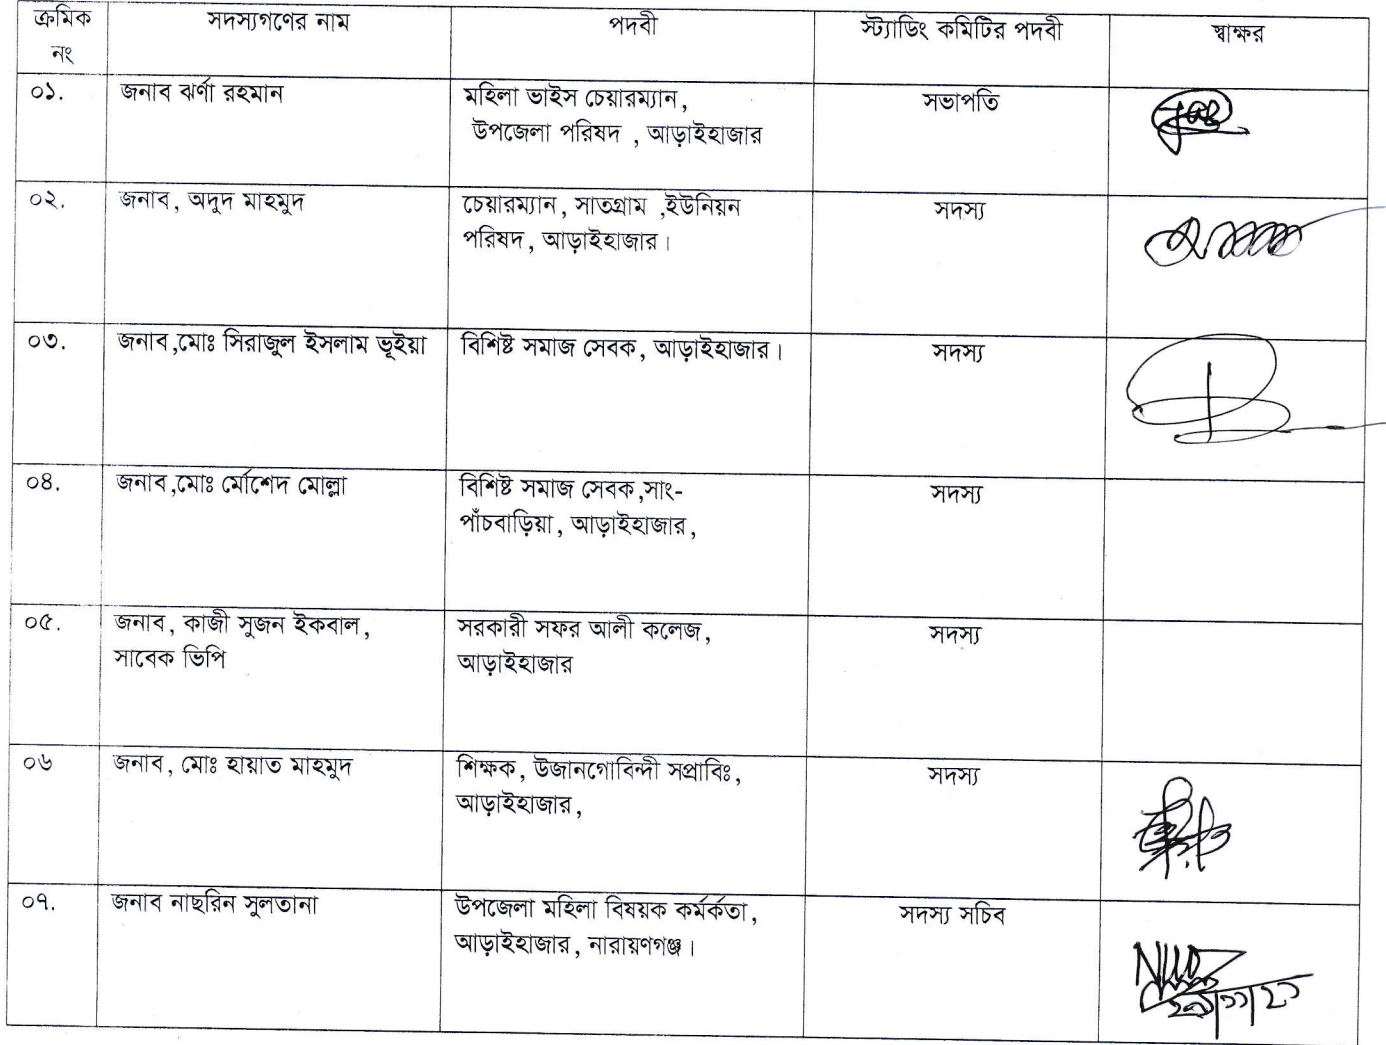 ক্রমিক নং সদস্যগণের নাম পদবী স্ট্যাডিং কমিটির পদবী স্বাক্ষর
০১. জনাব ঝর্ণা রহমান মহিলা ভাইস চেয়ারম্যান, সভাপতি
উপজেলা পরিষদ , আড়াইহাজার
০২. জনাব, অদুদ মাহমুদ চেয়ারম্যান, সাতগ্রাম ,ইউনিয়ন সদস্য
পরিষদ, আড়াইহাজার।
০৩. জনাব,মোঃ সিরাজুল ইসলাম ভূইয়া বিশিষ্ট সমাজ সেবক, আড়াইহাজার। সদস্য
০৪. জনাব,মোঃ র্মোশেদ মোল্লা বিশিষ্ট সমাজ সেবক,সাং- সদস্য
পাঁচবাড়িয়া, আড়াইহাজার,
০৫. জনাব, কাজী সুজন ইকবাল, সরকারী সফর আলী কলেজ, সদস্য
সাবেক ভিপি আড়াইহাজার
০৬ জনাব, মোঃ হায়াত মাহমুদ শিক্ষক, উজানগোবিন্দী সপ্রাবিঃ, সদস্য
আড়াইহাজার,
০৭. জনাব নাছরিন সুলতানা উপজেলা মহিলা বিষয়ক কর্মর্কতা, সদস্য সচিব
আড়াইহাজার, নারায়ণগঞ্জ।